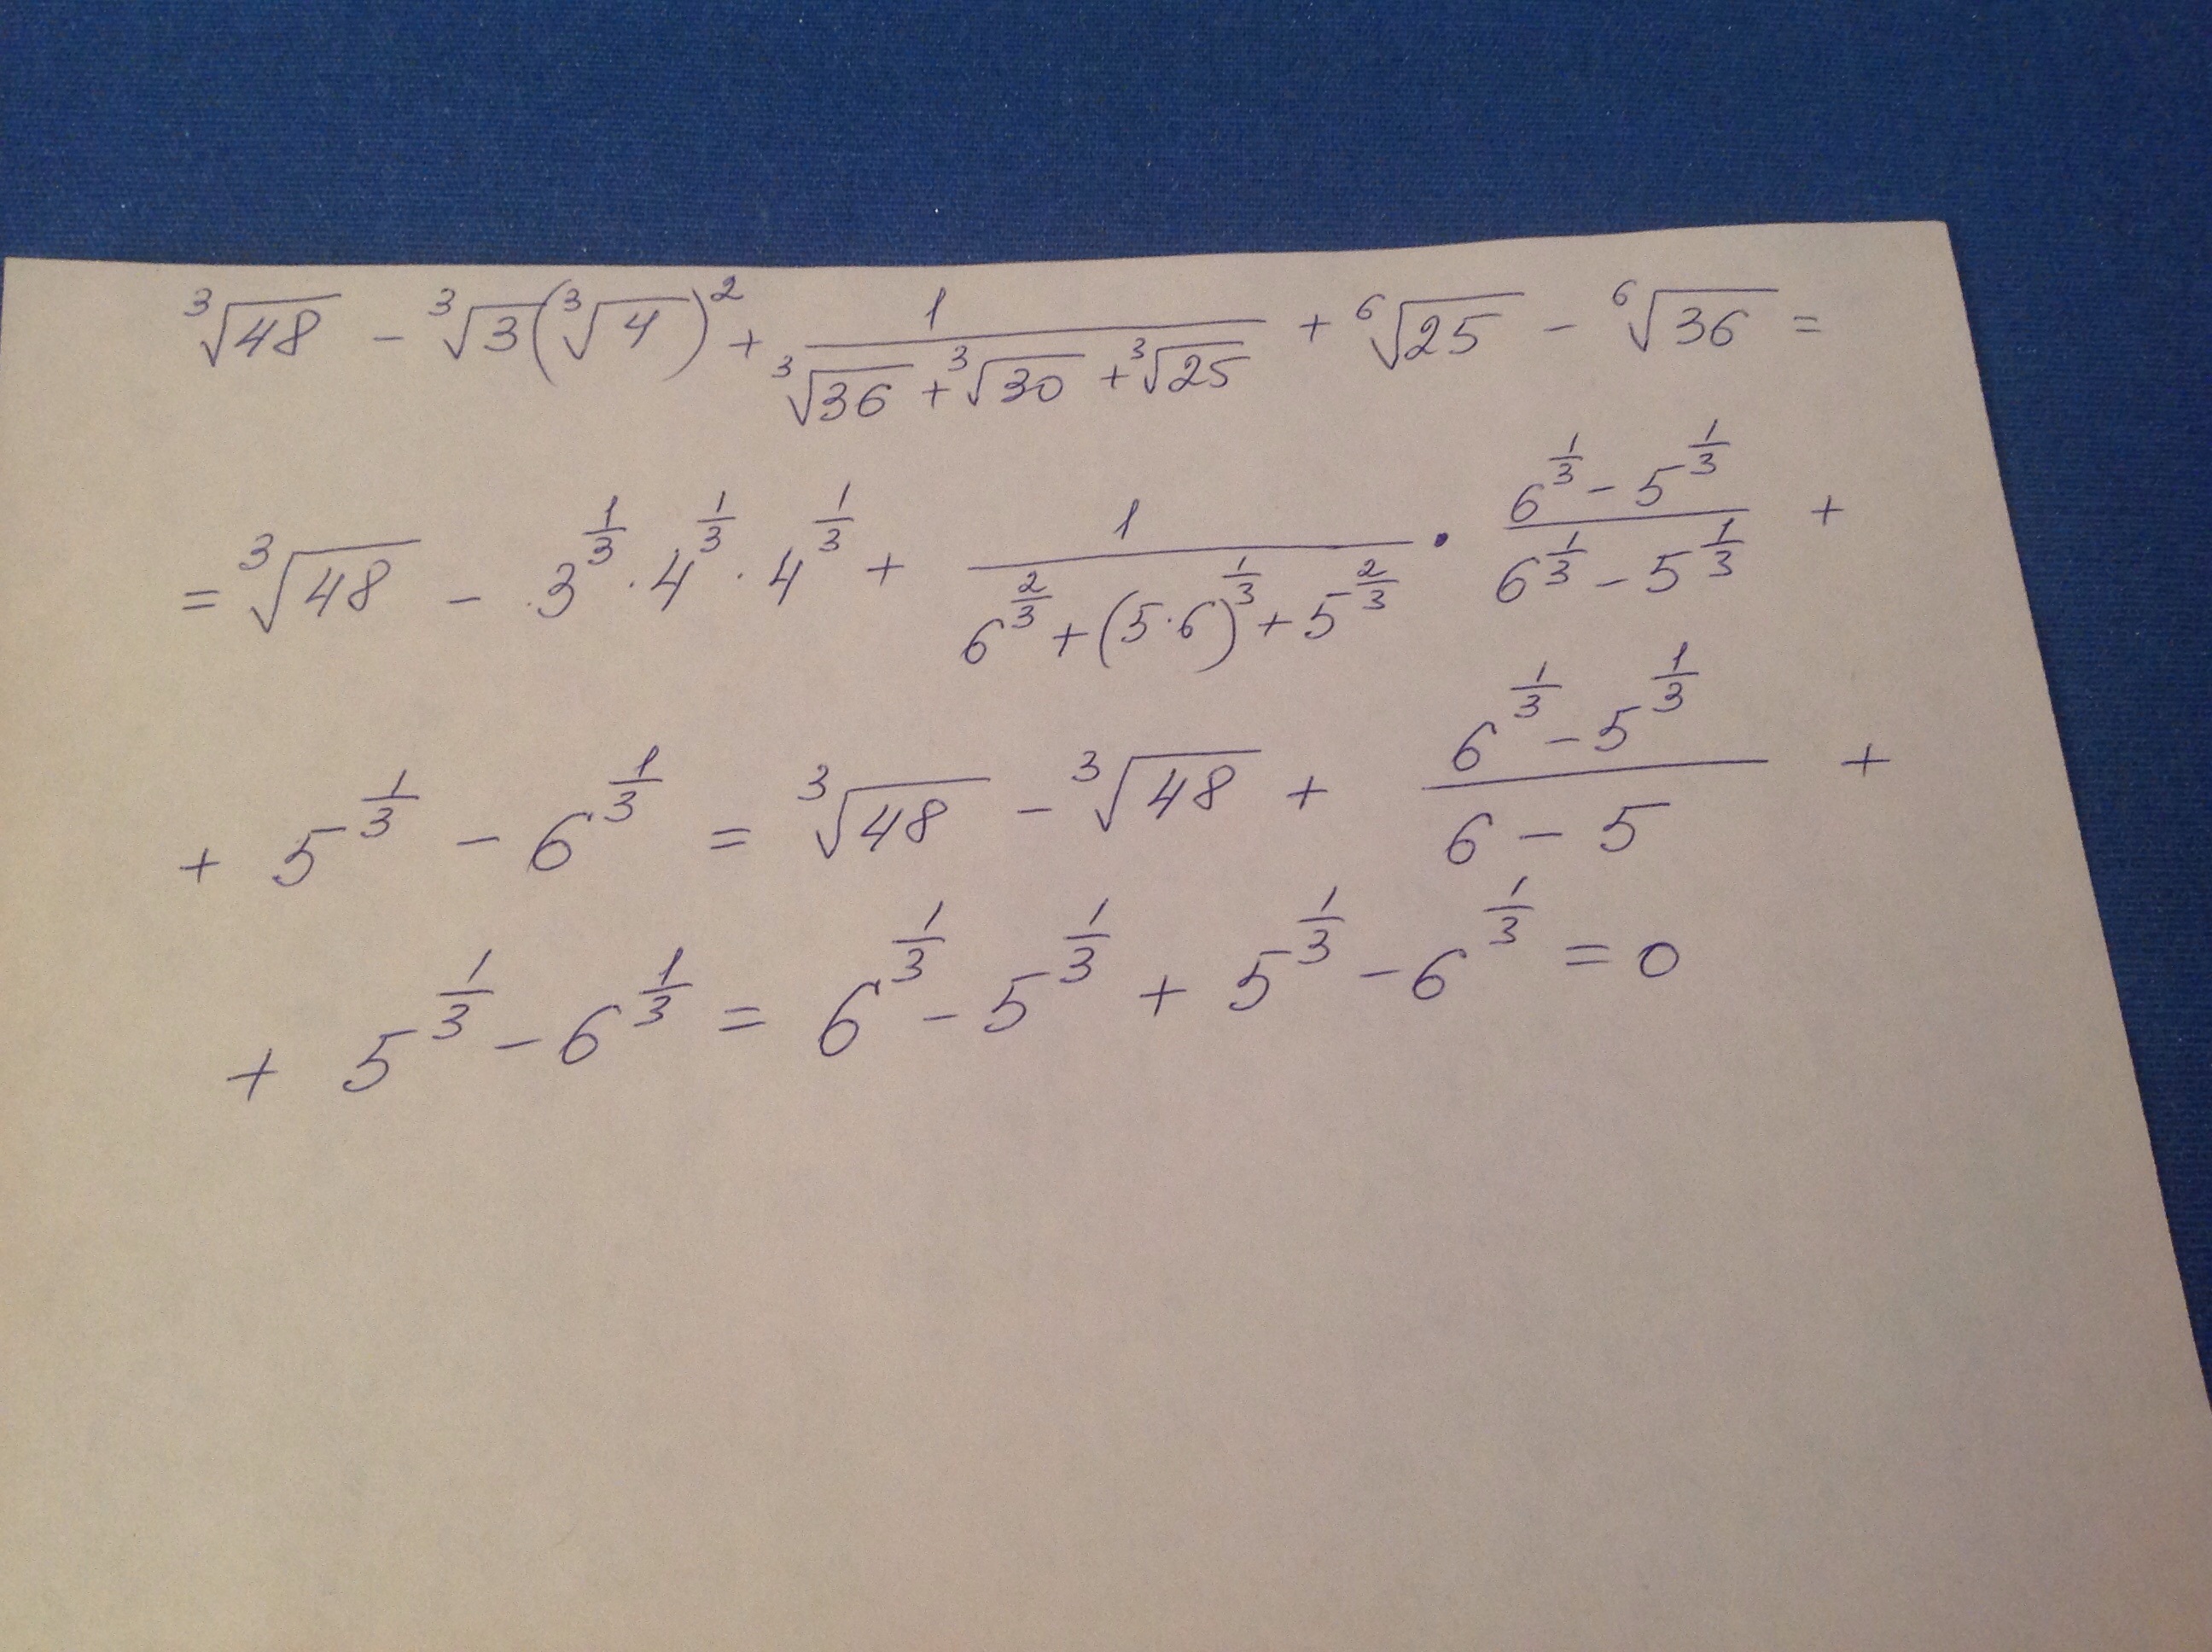 ∛48 − ∛3(∛4)² + 1/(∛36 + ∛30 + ∛25) + ⁶√25 − ⁶√36 =
= ∛48 − 3^(1/3) · 4^(1/3) · 4^(1/3) + 1/(6^(2/3) + (5·6)^(1/3) + 5^(2/3)) · (6^(1/3) − 5^(1/3))/(6^(1/3) − 5^(1/3)) +
+ 5^(1/3) − 6^(1/3) = ∛48 − ∛48 + (6^(1/3) − 5^(1/3))/(6 − 5) +
+ 5^(1/3) − 6^(1/3) = 6^(1/3) − 5^(1/3) + 5^(1/3) − 6^(1/3) = 0